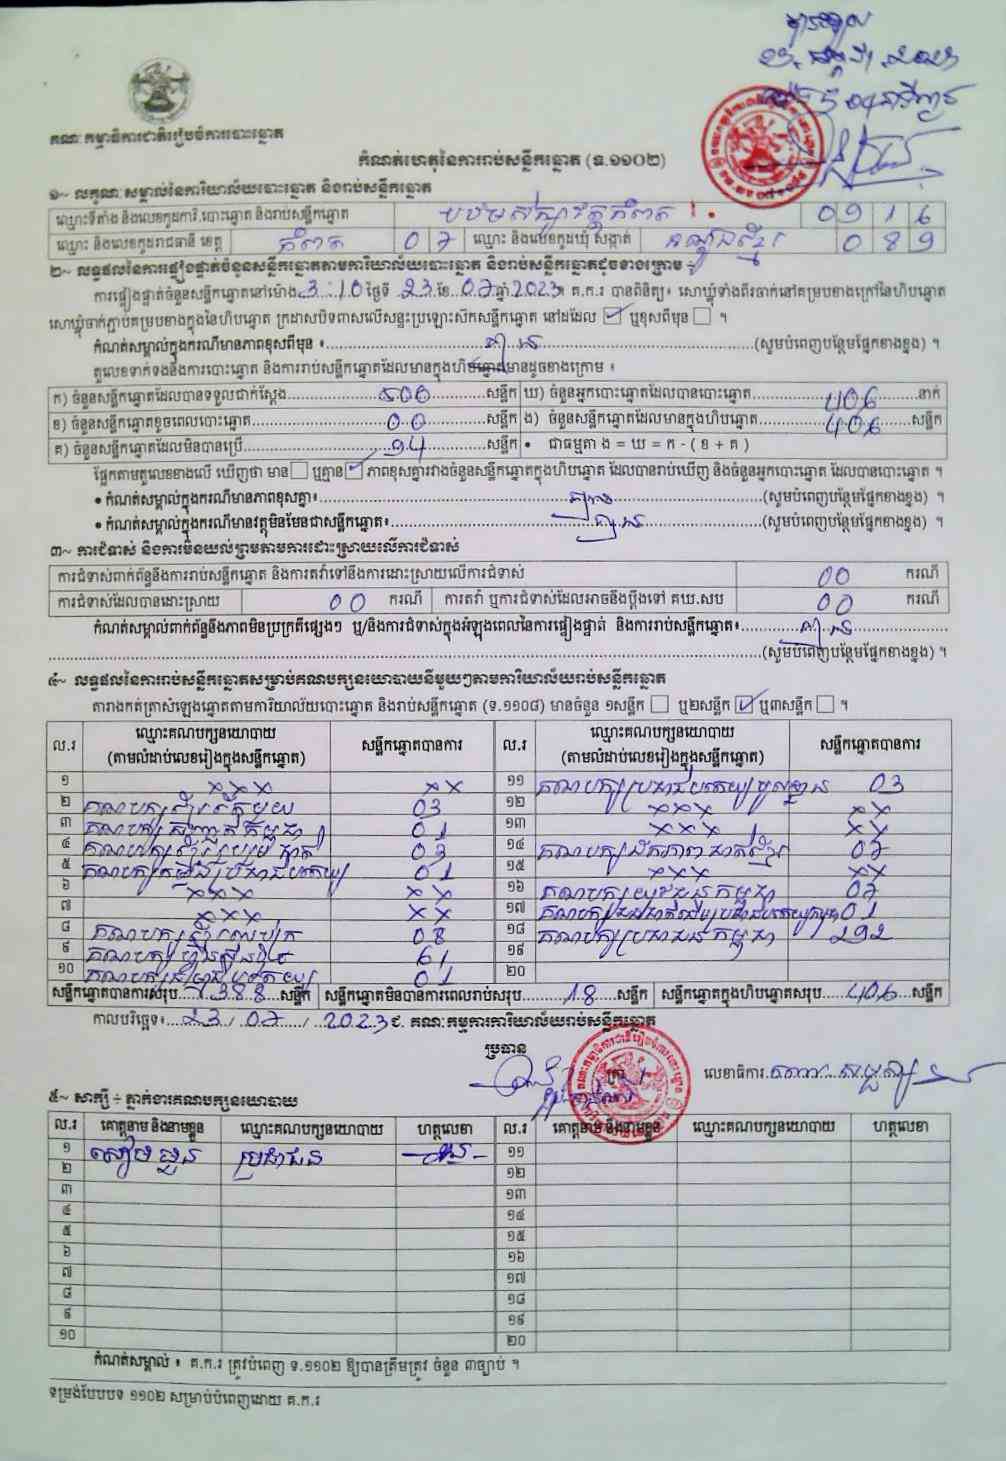 គណៈកម្មាធិការជាតិរៀបចំការបោះឆ្នោត
កំណត់ហេតុនៃការរាប់សន្លឹកឆ្នោត (ទ.១១០២)
១~ លក្ខណៈសម្គាល់នៃការិយាល័យបោះឆ្នោត និងរាប់សន្លឹកឆ្នោត
ឈ្មោះទីតាំង និងលេខកូដការិ.បោះឆ្នោត និងរាប់សន្លឹកឆ្នោត 0916
ឈ្មោះ និងលេខកូដរាជធានី ខេត្ត កំពត 07 ឈ្មោះ និងលេខកូដឃុំ សង្កាត់ 089
២~ លទ្ធផលនៃការផ្ទៀងផ្ទាត់ចំនួនសន្លឹកឆ្នោតតាមការិយាល័យបោះឆ្នោត និងរាប់សន្លឹកឆ្នោតដូចខាងក្រោម ៖
ការផ្ទៀងផ្ទាត់ចំនួនសន្លឹកឆ្នោតនៅម៉ោង 3:10 ថ្ងៃទី 23 ខែ 07 ឆ្នាំ 2023 ។ គ.ក.រ បានពិនិត្យ៖ សោឃ្លុំទាំងពីរចាក់នៅគម្របខាងក្រៅនៃហិបឆ្នោត
សោឃ្លុំចាក់ភ្ជាប់គម្របខាងក្នុងនៃហិបឆ្នោត ក្រដាសបិទពាសលើសន្ទះប្រឡោះសឹកសន្លឹកឆ្នោត នៅដដែល ☑ ឬខុសពីមុន ☐ ។
កំណត់សម្គាល់ក្នុងករណីមានភាពខុសពីមុន ៖ គ្មាន (សូមបំពេញបន្ថែមផ្នែកខាងខ្នង) ។
តួលេខទាក់ទងនឹងការបោះឆ្នោត និងការរាប់សន្លឹកឆ្នោតដែលមានក្នុងហិបឆ្នោតមានដូចខាងក្រោម ៖
ក) ចំនួនសន្លឹកឆ្នោតដែលបានទទួលជាក់ស្តែង 500 សន្លឹក ឃ) ចំនួនអ្នកបោះឆ្នោតដែលបានបោះឆ្នោត 406 នាក់
ខ) ចំនួនសន្លឹកឆ្នោតខូចពេលបោះឆ្នោត 00 សន្លឹក ង) ចំនួនសន្លឹកឆ្នោតដែលមានក្នុងហិបឆ្នោត 406 សន្លឹក
គ) ចំនួនសន្លឹកឆ្នោតដែលមិនបានប្រើ 94 សន្លឹក • ជាធម្មតា ង = ឃ = ក - ( ខ + គ )
ផ្អែកតាមតួលេខខាងលើ ឃើញថា មាន ☐ ឬគ្មាន ☑ ភាពខុសគ្នារវាងចំនួនសន្លឹកឆ្នោតក្នុងហិបឆ្នោត ដែលបានរាប់ឃើញ និងចំនួនអ្នកបោះឆ្នោត ដែលបានបោះឆ្នោត ។
• កំណត់សម្គាល់ក្នុងករណីមានភាពខុសគ្នា៖ គ្មាន (សូមបំពេញបន្ថែមផ្នែកខាងខ្នង) ។
• កំណត់សម្គាល់ក្នុងករណីមានវត្ថុមិនមែនជាសន្លឹកឆ្នោត៖ គ្មាន (សូមបំពេញបន្ថែមផ្នែកខាងខ្នង) ។
៣~ ការជំទាស់ និងការមិនយល់ព្រមតាមការដោះស្រាយលើការជំទាស់
ការជំទាស់ពាក់ព័ន្ធនឹងការរាប់សន្លឹកឆ្នោត និងការតវ៉ាទៅនឹងការដោះស្រាយលើការជំទាស់ 00 ករណី
ការជំទាស់ដែលបានដោះស្រាយ 00 ករណី ការតវ៉ា ឬការជំទាស់ដែលអាចនឹងប្តឹងទៅ គឃ.សប 00 ករណី
កំណត់សម្គាល់ពាក់ព័ន្ធនឹងភាពមិនប្រក្រតីផ្សេងៗ ឬ/និងការជំទាស់ក្នុងអំឡុងពេលនៃការផ្ទៀងផ្ទាត់ និងការរាប់សន្លឹកឆ្នោត៖ គ្មាន
(សូមបំពេញបន្ថែមផ្នែកខាងខ្នង) ។
៤~ លទ្ធផលនៃការរាប់សន្លឹកឆ្នោតសម្រាប់គណបក្សនយោបាយនីមួយៗតាមការិយាល័យរាប់សន្លឹកឆ្នោត
តារាងកត់ត្រាសំឡេងឆ្នោតតាមការិយាល័យបោះឆ្នោត និងរាប់សន្លឹកឆ្នោត (ទ.១១០៨) មានចំនួន ១សន្លឹក ☐ ឬ២សន្លឹក ☑ ឬ៣សន្លឹក ☐ ។
ល.រ ឈ្មោះគណបក្សនយោបាយ (តាមលំដាប់លេខរៀងក្នុងសន្លឹកឆ្នោត) សន្លឹកឆ្នោតបានការ ល.រ ឈ្មោះគណបក្សនយោបាយ (តាមលំដាប់លេខរៀងក្នុងសន្លឹកឆ្នោត) សន្លឹកឆ្នោតបានការ
១ xxx xx ១១ គណបក្សប្រជាធិបតេយ្យមូលដ្ឋាន 03
២ គណបក្សខ្មែរតែមួយ 03 ១២ xxx xx
៣ គណបក្ស កម្ពុជា 01 ១៣ xxx xx
៤ គណបក្សខ្មែរ ជាតិ 03 ១៤ គណបក្សឯកភាពជាតិខ្មែរ 07
៥ គណបក្ស ប្រជាធិបតេយ្យ 01 ១៥ xxx xx
៦ xxx xx ១៦ គណបក្សយុវជនកម្ពុជា 07
៧ xxx xx ១៧ គណបក្ស 01
៨ គណបក្ស 08 ១៨ គណបក្សប្រជាជនកម្ពុជា 292
៩ គណបក្សហ៊្វុនស៊ិនប៉ិច 61 ១៩
១០ គណបក្ស 01 ២០
សន្លឹកឆ្នោតបានការសរុប 388 សន្លឹក សន្លឹកឆ្នោតមិនបានការពេលរាប់សរុប 18 សន្លឹក សន្លឹកឆ្នោតក្នុងហិបឆ្នោតសរុប 406 សន្លឹក
កាលបរិច្ឆេទ៖ 23 / 07 / 2023 ជ. គណៈកម្មការការិយាល័យរាប់សន្លឹកឆ្នោត
ប្រធាន
លេខាធិការ
៥~ សាក្សី ÷ ភ្នាក់ងារគណបក្សនយោបាយ
ល.រ គោត្តនាម និងនាមខ្លួន ឈ្មោះគណបក្សនយោបាយ ហត្ថលេខា ល.រ គោត្តនាម និងនាមខ្លួន ឈ្មោះគណបក្សនយោបាយ ហត្ថលេខា
១ ប្រជាជន ១១
២ ១២
៣ ១៣
៤ ១៤
៥ ១៥
៦ ១៦
៧ ១៧
៨ ១៨
៩ ១៩
១០ ២០
កំណត់សម្គាល់ ៖ គ.ក.រ ត្រូវបំពេញ ទ.១១០២ ឱ្យបានត្រឹមត្រូវ ចំនួន ៣ច្បាប់ ។
ទម្រង់បែបបទ ១១០២ សម្រាប់បំពេញដោយ គ.ក.រ